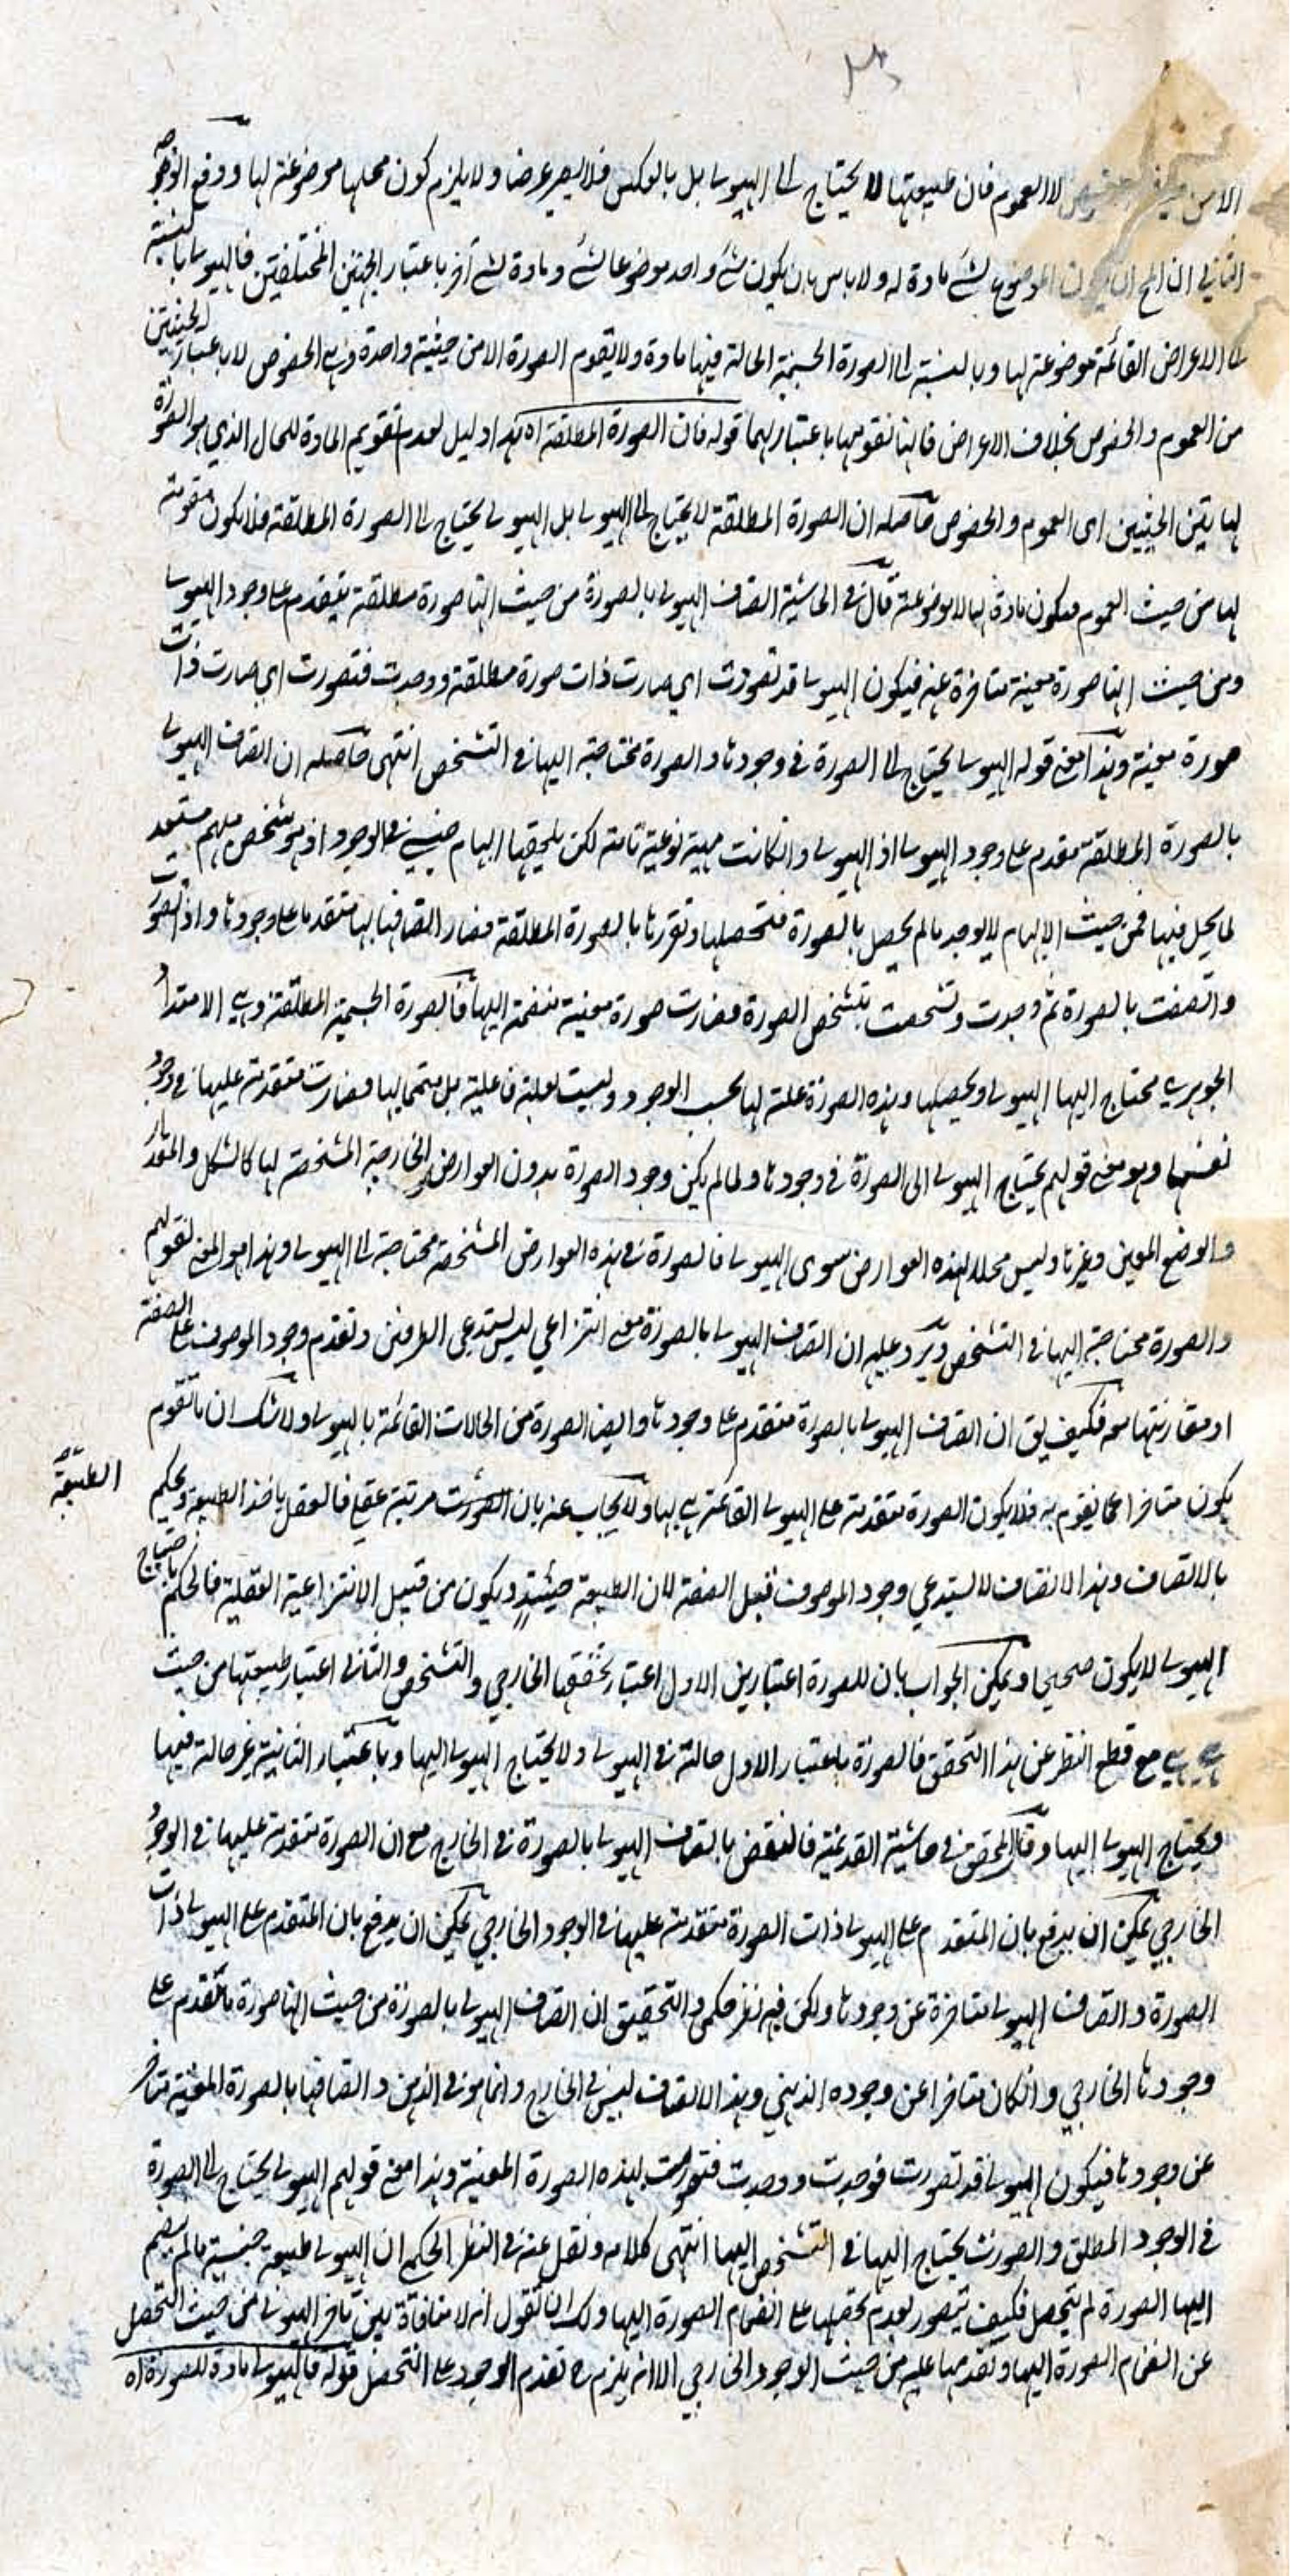 لا العموم فان طبيعتها لا يحتاج الى الهيولى بل بالعكس فلا يصير عرضا ولا يلزم كون محلها موضوعة لها ووقع التوجيه
الثاني ان يكون الموضوع لشئ مادة له ولا باس بان يكون شئ واحد موضوعا لشئ ومادة لشئ آخر باعتبار الجهتين المختلفتين فالهيولى بالنسبة
الى الاعراض القائمة موضوعة لها وبالنسبة الى الصورة الجسمية الحالة فيها مادة ولا يقوم الصورة الا من حيثية واحدة وهى الخصوص لا باعتبار الحيثيتين
من العموم والخصوص بخلاف الاعراض فانها تقومها باعتبارهما قوله فان الصورة المطلقة اه هذا دليل لعدم تقويم المادة للحال الذي هو الصورة
بهاتين الحيثيتين اى العموم والخصوص حاصله ان الصورة المطلقة لا يحتاج الى الهيولى بل الهيولى يحتاج الى الصورة المطلقة فلا يكون مقومة
لها من حيث العموم فيكون مادة لها لا موضوعة قال في الحاشية اتصاف الهيولى بالصورة من حيث انها صورة مطلقة يتقدم على وجود الهيولى
ومن حيث انها صورة معينة متاخرة عنه فيكون الهيولى قد تصورت اى صارت ذات صورة مطلقة ووجدت فتصورت اى صارت ذات
صورة معينة وهذا معنى قوله الهيولى يحتاج الى الصورة في وجودها والصورة محتاجة اليها في التشخص انتهى حاصله ان اتصاف الهيولى
بالصورة المطلقة مقدم على وجود الهيولى اذ الهيولى وان كانت مهية نوعية تامة لكن يلحقها ابهام جنسي في الوجود اذ هو شخص مبهم مستعد
لما يحل فيها فمن حيث الابهام لا يوجد ما لم يحصل بالصورة فتحصلها وتقررها بالصورة المطلقة فصار اتصافها بها متقدما على وجودها واذا تصورت
واتصفت بالصورة ثم وجدت وتشخصت بتشخص الصورة فصارت صورة معينة منضمة اليها فالصورة الجسمية المطلقة وهى الامتداد
الجوهري محتاج اليها الهيولى وتحصلها وهذه الصورة علة لها بحسب الوجود وليست لعلة فاعلية بل متمما لها فصارت متقدمة عليها في وجود
نفسها وهو معنى قولهم يحتاج الهيولى الى الصورة في وجودها ولما لم يكن وجود الصورة بدون العوارض الخارجية المشخصة لها كالشكل والمقدار
والوضع المعين وغيرها وليس محلا لهذه العوارض سوى الهيولى فالصورة في هذه العوارض المشخصة محتاجة الى الهيولى وهذا هو المعنى لقولهم
والصورة محتاجة اليها في التشخص ويرد عليه ان اتصاف الهيولى بالصورة معنى انتزاعي يستدعى الطرفين وتقدم وجود الموصوف على الصفة
او مقارنتها معه فكيف يق ان اتصاف الهيولى بالصورة متقدم على وجودها وايضا الصورة من الحالات القائمة بالهيولى ولا شك ان ما تقوم
يكون متاخرا عما يقوم به فلا يكون الصورة متقدمة على الهيولى القائمة هي بها ولا يجاب عنه بان مرتبة عقلي فالعقل ياخذ الطبيعة ويحكم
الطبيعة
بالاتصاف وهذا الاتصاف لا يستدعي وجود الموصوف قبل الصفة لان الطبيعة حينئذ يكون من قبيل الانتزاعية العقلية فالحكم باحتياج
الهيولى لا يكون صحيحا ويمكن الجواب بان للصورة اعتبارين الاول اعتبار تحققها الخارجي والتشخص والثاني اعتبار طبيعتها من حيث
هي هي مع قطع النظر عن هذا التحقق فالصورة باعتبار الاول حالة في الهيولى ولا يحتاج الهيولى اليها وباعتبار الثانية غير حالة فيها
ويحتاج الهيولى اليها وقال المحقق في حاشية القديمة فالنقض باتصاف الهيولى بالصورة في الخارج مع ان الصورة متقدمة عليها في الوجود
الخارجي يمكن ان يدفع بان المتقدم على الهيولى ذات الصورة متقدمة عليها في الوجود الخارجي يمكن ان يدفع بان المتقدم على الهيولى ذات
الصورة واتصاف الهيولى متاخرة عن وجودها ولكن فيه نظر حكمي والتحقيق ان اتصاف الهيولى بالصورة من حيث انها صورة ما تقدم على
وجودها الخارجي وان كان متاخرا عن وجوده الذهني وهذا الاتصاف ليس في الخارج وانما هو في الذهن واتصافها بالصورة المعينة متاخر
عن وجودها فيكون الهيولى قد تصورت فوجدت ووجدت فتصورت بهذه الصورة المعينة وهذا معنى قولهم الهيولى يحتاج الى الصورة
في الوجود المطلق والصورت يحتاج اليها في التشخص اليها انتهى كلامه ونقل عنه في النظر الحكم ان الهيولى طبيعة جنسية ما لم ينضم
اليها الصورة لم يتحصل فكيف يتصور بعدم تحصلها على انضمام الصورة اليها ولك ان تقول انه لا منافاة بين تاخر الهيولى من حيث التحصل
عن انضمام الصورة اليها وتقدمها عليه من حيث الوجود الخارجي الا انه يلزم ح تقدم الوجود على التحصل قوله فالهيولى مادة للصورة اه